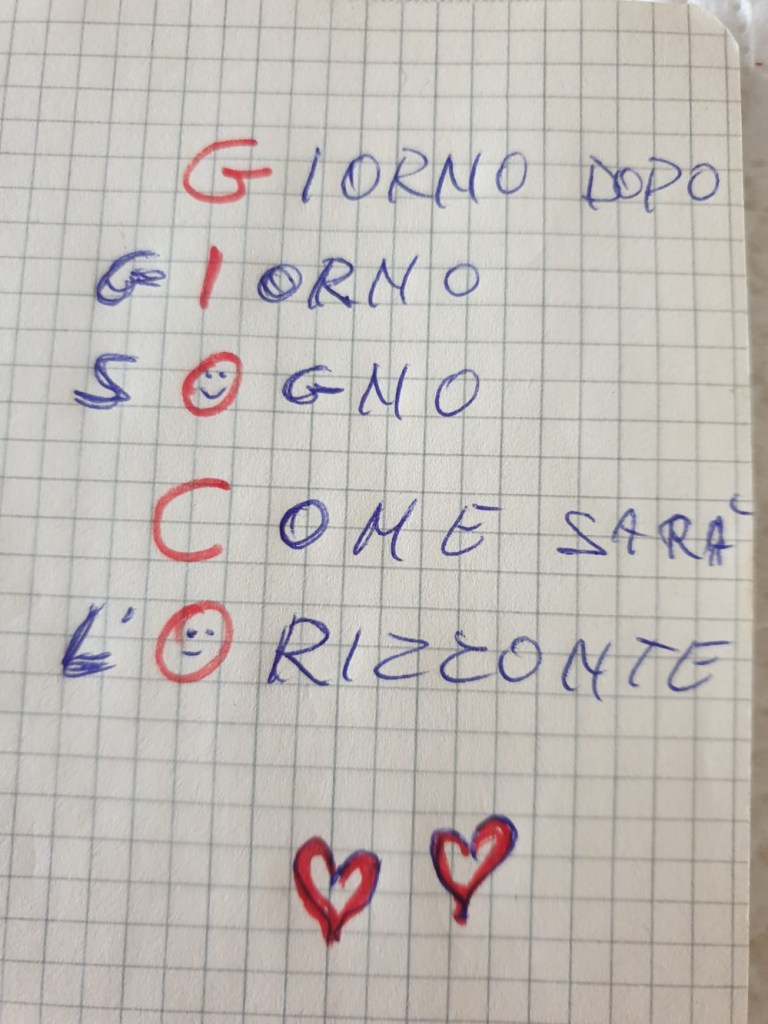 GIORNO DOPO
GIORNO
SOGNO
COME SARÀ
L'ORIZZONTE